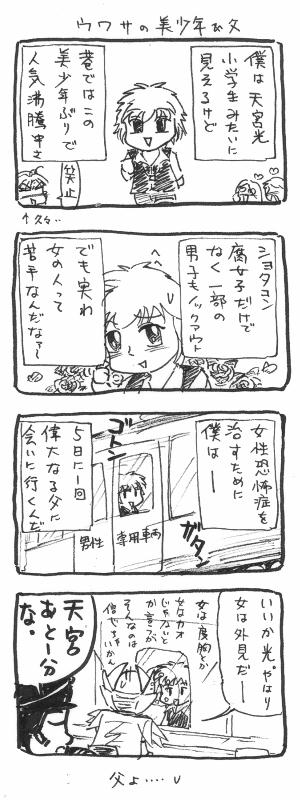 ウワサの美少年び父
僕は天宮光
小学生みたいに
見えるけど
巷ではこの
美少年ぶりで
人気沸騰中さ
笑止
ショタコン
腐女子だけで
なく一部の
男子もノックアウト
でも実わ
女の人って
苦手なんだなァ～
女性恐怖症を
治すために
僕は――
ゴトン
5日に一回
偉大なる父に
会いに行くんだ
男性
専用車両
ガタン
いいか光。やはり
女は外見だー
女は度胸とか
女はカオ
じゃないと
か言うが
そんなのは
信じちゃいかん
天宮
あと一分
な。
父よ‥‥